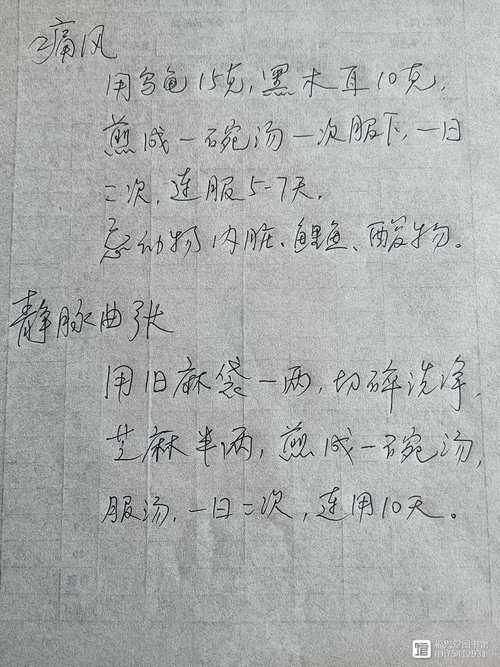 2痛风
用乌龟15克,黑木耳10克,
煎成一碗汤一次服下,一日
二次,连服5-7天,
忌动物内脏、鲤鱼、酸物。
静脉曲张
用旧麻袋一两,切碎洗净,
芝麻半两,煎成一碗汤,
服汤,一日二次,连用10天。